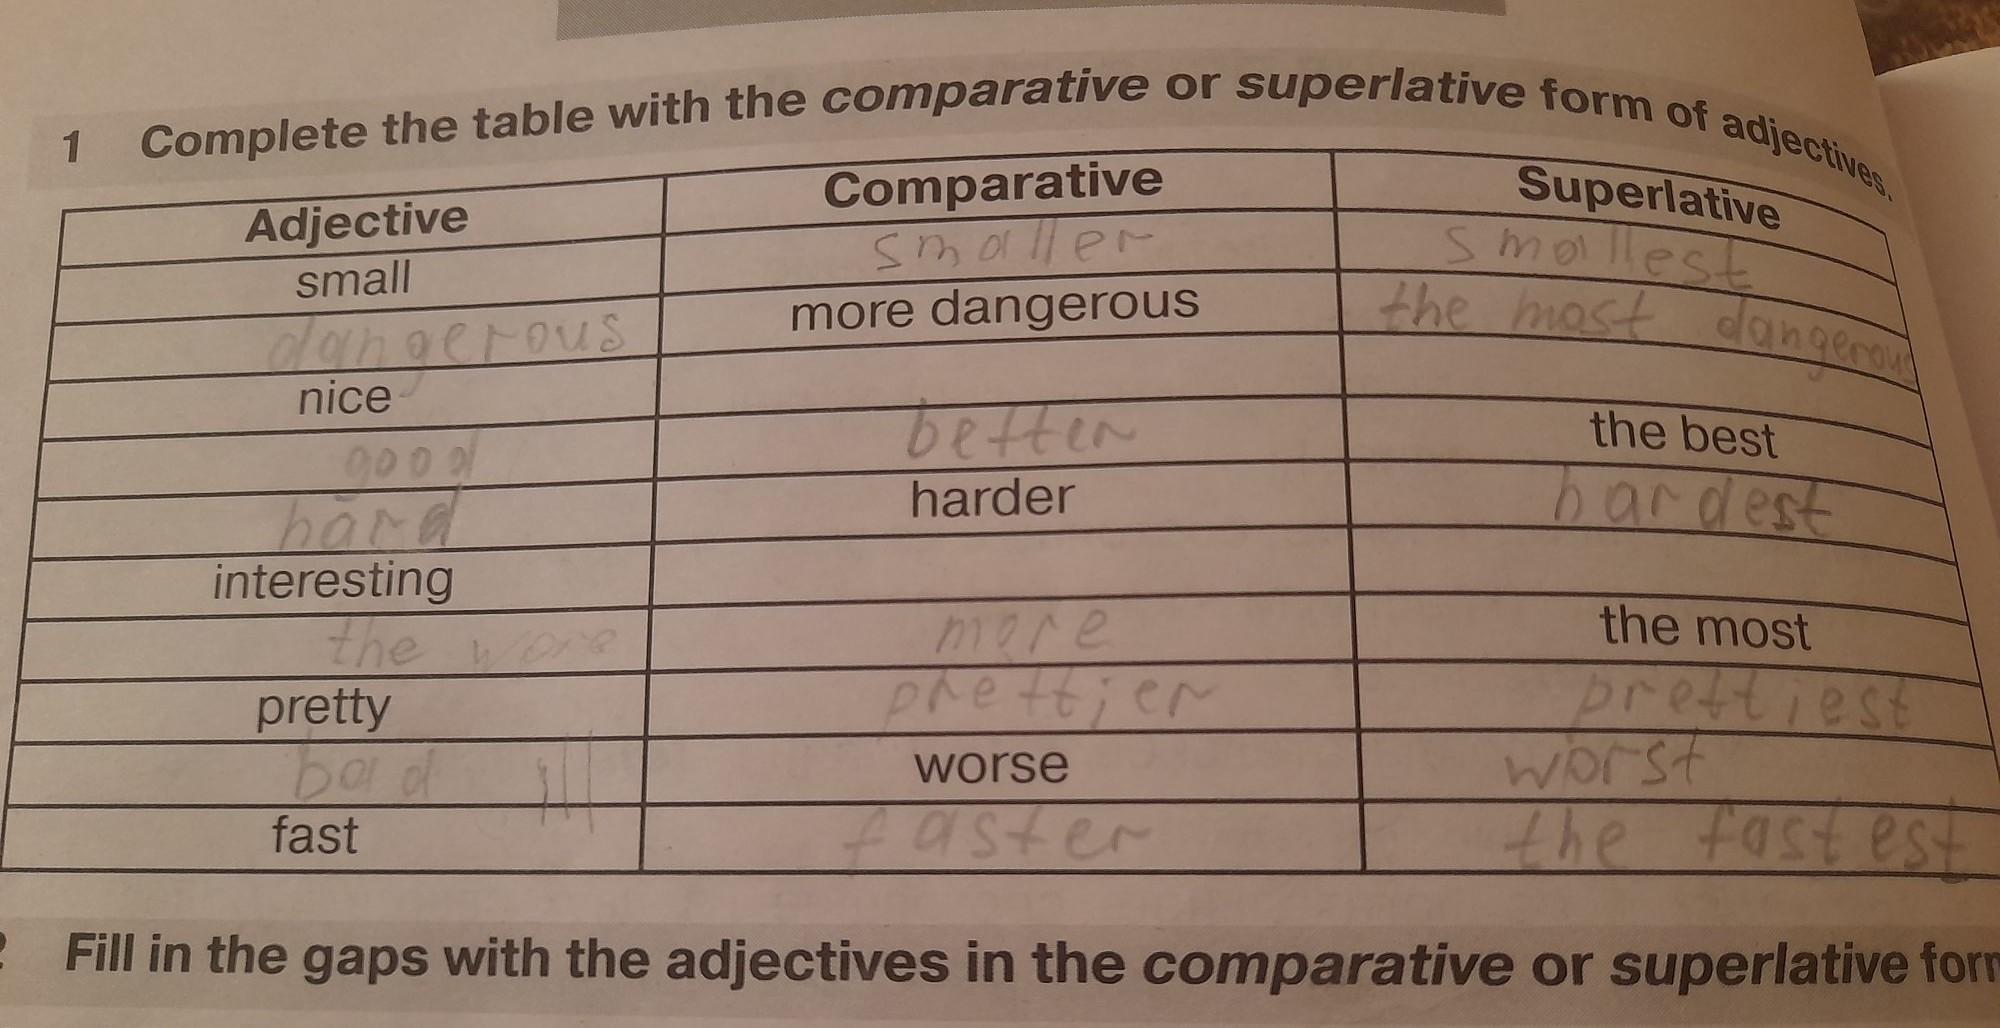 1 Complete the table with the comparative or superlative form of adjectives.
Adjective Comparative Superlative
small smaller smallest
dangerous more dangerous the most dangerous
nice
good better the best
hard harder hardest
interesting
the more the most
pretty prettier prettiest
bad worse worst
fast faster the fastest
Fill in the gaps with the adjectives in the comparative or superlative form